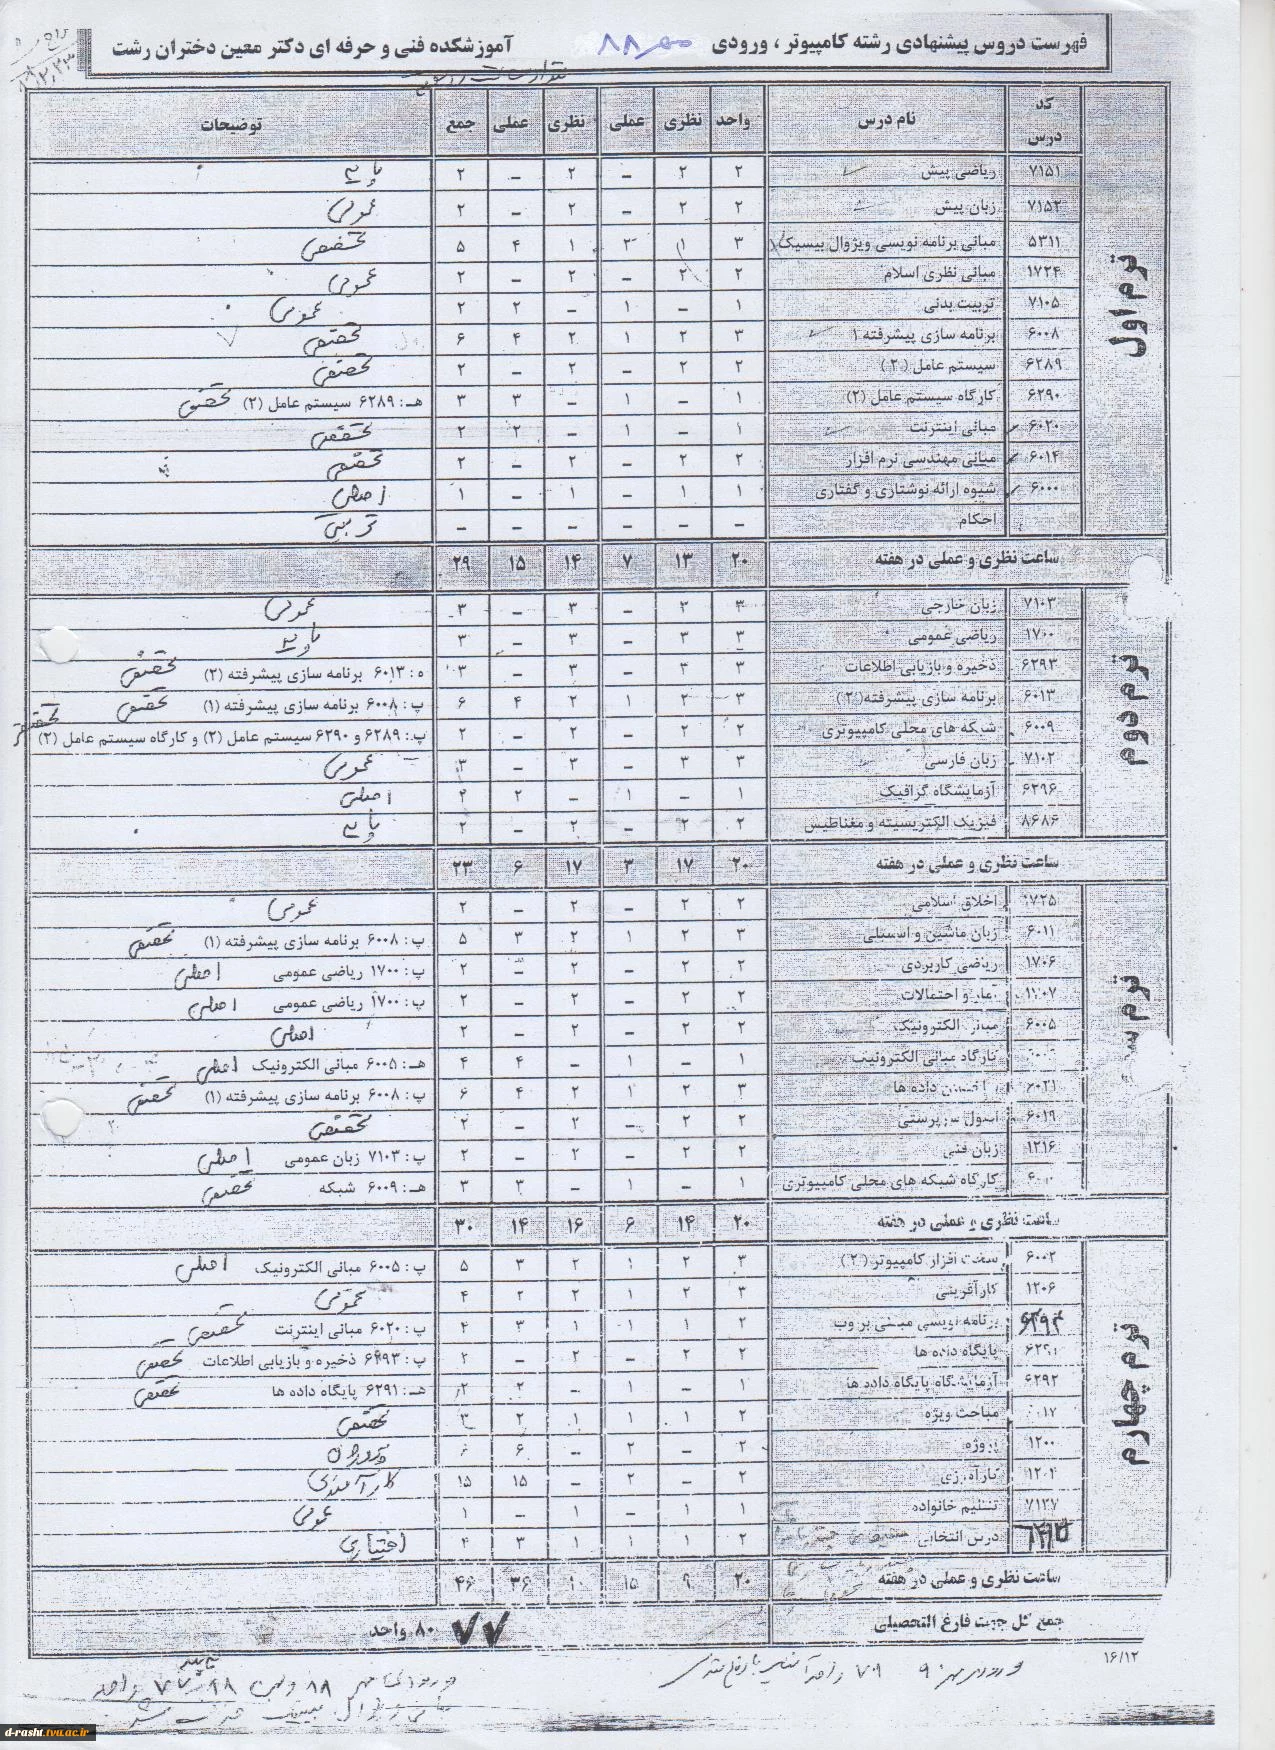 فهرست دروس پیشنهادی رشته کامپیوتر ، ورودی مهر ۸۸ آموزشکده فنی و حرفه ای دکتر معین دختران رشت
کد درس نام درس واحد نظری عملی نظری عملی جمع توضیحات
ترم اول
۷۱۵۱ ریاضی پیش ۲ ۲ – ۲ – ۲ پایه
۷۱۵۲ زبان پیش ۲ ۲ – ۲ – ۲ عمومی
۵۳۱۱ مبانی برنامه نویسی ویژوال بیسیک ۳ ۱ ۲ ۱ ۴ ۵ تخصصی
۱۷۲۴ مبانی نظری اسلام ۲ ۲ – ۲ – ۲ عمومی
۷۱۰۵ تربیت بدنی ۱ – ۱ – ۲ ۲ عمومی
۶۰۰۸ برنامه سازی پیشرفته ۱ ۳ ۲ ۱ ۲ ۴ ۶ تخصصی
۶۲۸۹ سیستم عامل (۲) ۲ ۲ – ۲ – ۲ تخصصی
۶۲۹۰ کارگاه سیستم عامل (۲) ۱ – ۱ – ۳ ۳ هـ: ۶۲۸۹ سیستم عامل (۲) تخصصی
۶۰۲۰ مبانی اینترنت ۱ – ۱ – ۲ ۲ تخصصی
۶۰۱۴ مبانی مهندسی نرم افزار ۲ ۲ – ۲ – ۲ تخصصی
۶۰۰۰ شیوه ارائه نوشتاری و گفتاری ۱ ۱ – ۱ – ۱ اصلی
احکام – – – – – – تربیتی
ساعت نظری و عملی در هفته ۲۰ ۱۳ ۷ ۱۴ ۱۵ ۲۹
ترم دوم
۷۱۰۳ زبان خارجی ۳ ۳ – ۳ – ۳ عمومی
۱۷۰۰ ریاضی عمومی ۳ ۳ – ۳ – ۳ پایه
۶۲۹۳ ذخیره و بازیابی اطلاعات ۳ ۳ – ۳ – ۳ ه: ۶۰۱۳ برنامه سازی پیشرفته (۲) تخصصی
۶۰۱۳ برنامه سازی پیشرفته(۲) ۳ ۲ ۱ ۲ ۴ ۶ پ: ۶۰۰۸ برنامه سازی پیشرفته (۱) تخصصی
۶۰۰۹ شبکه های محلی کامپیوتری ۲ ۲ – ۲ – ۲ پ: ۶۲۸۹ و ۶۲۹۰ سیستم عامل (۲) و کارگاه سیستم عامل (۲) تخصصی
۷۱۰۲ زبان فارسی ۳ ۳ – ۳ – ۳ عمومی
۶۲۹۶ آزمایشگاه گرافیک ۱ – ۱ – ۲ ۲ اصلی
۸۶۸۶ فیزیک الکتریسیته و مغناطیس ۲ ۲ – ۲ – ۲ پایه
ساعت نظری و عملی در هفته ۲۰ ۱۷ ۳ ۱۷ ۶ ۲۳
ترم
۱۷۲۵ اخلاق اسلامی ۲ ۲ – ۲ – ۲ عمومی
۶۰۱۱ زبان ماشین و اسمبلی ۳ ۲ ۱ ۲ ۳ ۵ پ: ۶۰۰۸ برنامه سازی پیشرفته (۱) تخصصی
۱۷۰۶ ریاضی کاربردی ۲ ۲ – ۲ – ۲ پ: ۱۷۰۰ ریاضی عمومی اصلی
آمار و احتمالات ۲ ۲ – ۲ – ۲ پ: ۱۷۰۰ ریاضی عمومی اصلی
۶۰۰۵ مبانی الکترونیک ۲ ۲ – ۲ – ۲ اصلی
کارگاه مبانی الکترونیک ۱ – ۱ – ۴ ۴ هـ: ۶۰۰۵ مبانی الکترونیک اصلی
داده ها ۳ ۲ ۱ ۲ ۴ ۶ پ: ۶۰۰۸ برنامه سازی پیشرفته (۱) تخصصی
۶۰۱۹ اصول سرپرستی ۲ ۲ – ۲ – ۲ تخصصی
۱۲۱۶ زبان فنی ۲ ۲ – ۲ – ۲ پ: ۷۱۰۳ زبان عمومی اصلی
کارگاه شبکه های محلی کامپیوتری ۱ – ۱ – ۳ ۳ هـ: ۶۰۰۹ شبکه تخصصی
ساعت نظری و عملی در هفته ۲۰ ۱۴ ۶ ۱۶ ۱۴ ۳۰
ترم چهارم
۶۰۰۲ سخت افزار کامپیوتر (۲) ۳ ۲ ۱ ۲ ۳ ۵ پ: ۶۰۰۵ مبانی الکترونیک اصلی
۱۲۰۶ کارآفرینی ۳ ۲ ۱ ۲ ۲ ۴ عمومی
۶۲۹۴ برنامه نویسی مبتنی بر وب ۲ ۱ ۱ ۱ ۳ ۴ پ: ۶۰۲۰ مبانی اینترنت تخصصی
۶۲۹۱ پایگاه داده ها ۲ ۲ – ۲ – ۲ پ: ۶۲۹۳ ذخیره و بازیابی اطلاعات تخصصی
۶۲۹۲ آزمایشگاه پایگاه داده ها ۱ – ۱ – ۲ ۲ هـ: ۶۲۹۱ پایگاه داده ها تخصصی
مباحث ویژه ۲ ۱ ۱ ۱ ۲ ۳ تخصصی
۱۲۰۰ پروژه ۲ – ۲ – ۶ ۶ پروژه
۱۲۰۴ کارآموزی ۲ – ۲ – ۱۵ ۱۵ کارآموزی
۷۱۲۷ تنظیم خانواده ۱ ۱ – ۱ – ۱ عمومی
درس انتخابی ۲ ۱ ۱ ۱ ۳ ۴ اختیاری
ساعت نظری و عملی در هفته ۲۰ ۹ ۱۰ ۳۶ ۴۶
جمع کل جهت فارغ التحصیلی ۸۰ واحد ۷۷
۱۶/۱۲
ورودی مهر ۹۰ ۷۹ واحد
ورودی مهر ۸۸ و بهمن ۸۸ ۷۷ واحد
d-rasht.tvu.ac.ir